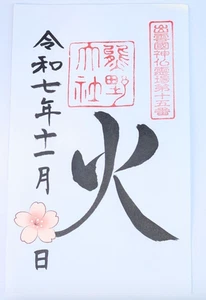 出雲國神仏霊場第十五番
熊野
大社
火
令和七年十一月
日